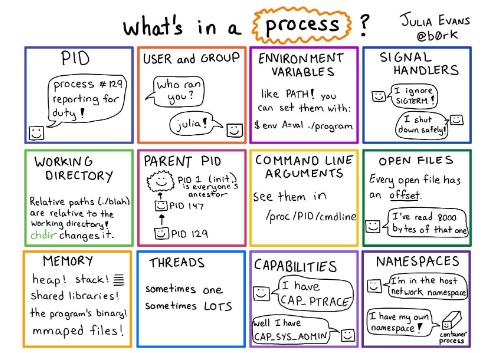 what's in a process?
JULIA EVANS
@b0rk
PID
process #129
reporting for
duty!
USER and GROUP
who ran
you?
julia!
ENVIRONMENT
VARIABLES
like PATH! you
can set them with:
$ env A=val ./program
SIGNAL
HANDLERS
I ignore
SIGTERM!
I shut
down safely!
WORKING
DIRECTORY
Relative paths (./blah)
are relative to the
working directory!
chdir changes it.
PARENT PID
PID 1 (init)
is everyone's
ancestor
PID 147
PID 129
COMMAND LINE
ARGUMENTS
see them in
/proc/PID/cmdline
OPEN FILES
Every open file has
an offset.
I've read 8000
bytes of that one
MEMORY
heap! stack!
shared libraries!
the program's binary!
mmaped files!
THREADS
sometimes one
sometimes LOTS
CAPABILITIES
I have
CAP_PTRACE
well I have
CAP_SYS_ADMIN
NAMESPACES
I'm in the host
network namespace
I have my own
namespace!
container
process